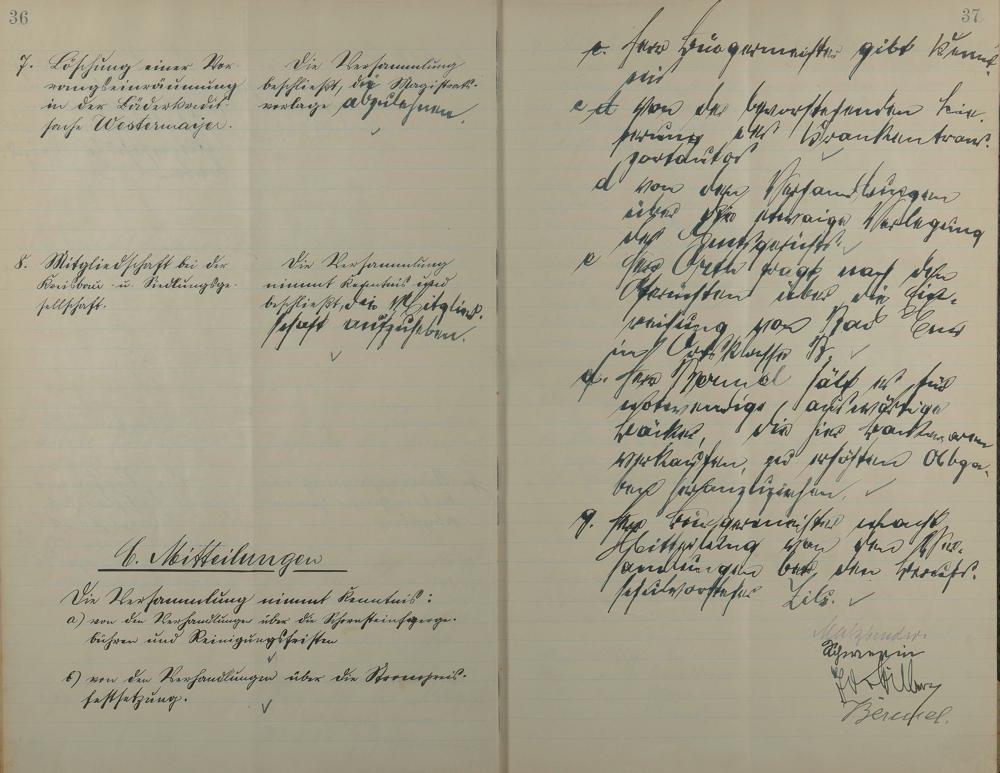 36
7. Löschung einer Vor-
rangseinräumung
in der Bäderkredit-
sache Westermayer.
Die Versammlung
beschließt, die Magistrats-
vorlage abzulehnen.
8. Mitgliedschaft bei der
Kreisbau- u. Siedlungsge-
sellschaft.
Die Versammlung
nimmt Kenntnis und
beschließt, die Mitglied-
schaft aufzuheben.
C. Mitteilungen
Die Versammlung nimmt Kenntnis:
a) von den Verhandlungen über die Schornsteinfegerge-
bühren und Reinigungsfristen
b) von den Verhandlungen über die Strompreis-
festsetzung.
37
c. Herr Bürgermeister gibt Kennt-
nis
von der bevorstehenden Lie-
ferung des Krankentrans-
portautos
d von den Verhandlungen
über die etwaige Verlegung
des Amtsgerichts
e Herr Orth fragt nach den
Gerüchten über die Ein-
reihung von Bad Ems
in Ortsklasse B.
f. Herr hält es für
notwendig, auswärtige
Bäcker, die hier Backwaren
verkaufen, zu erhöhten Abga-
ben heranzuziehen.
g. Herr Bürgermeister macht
Mitteilung von den Ver-
handlungen betr. den Berufs-
schulvorsteher Zils.